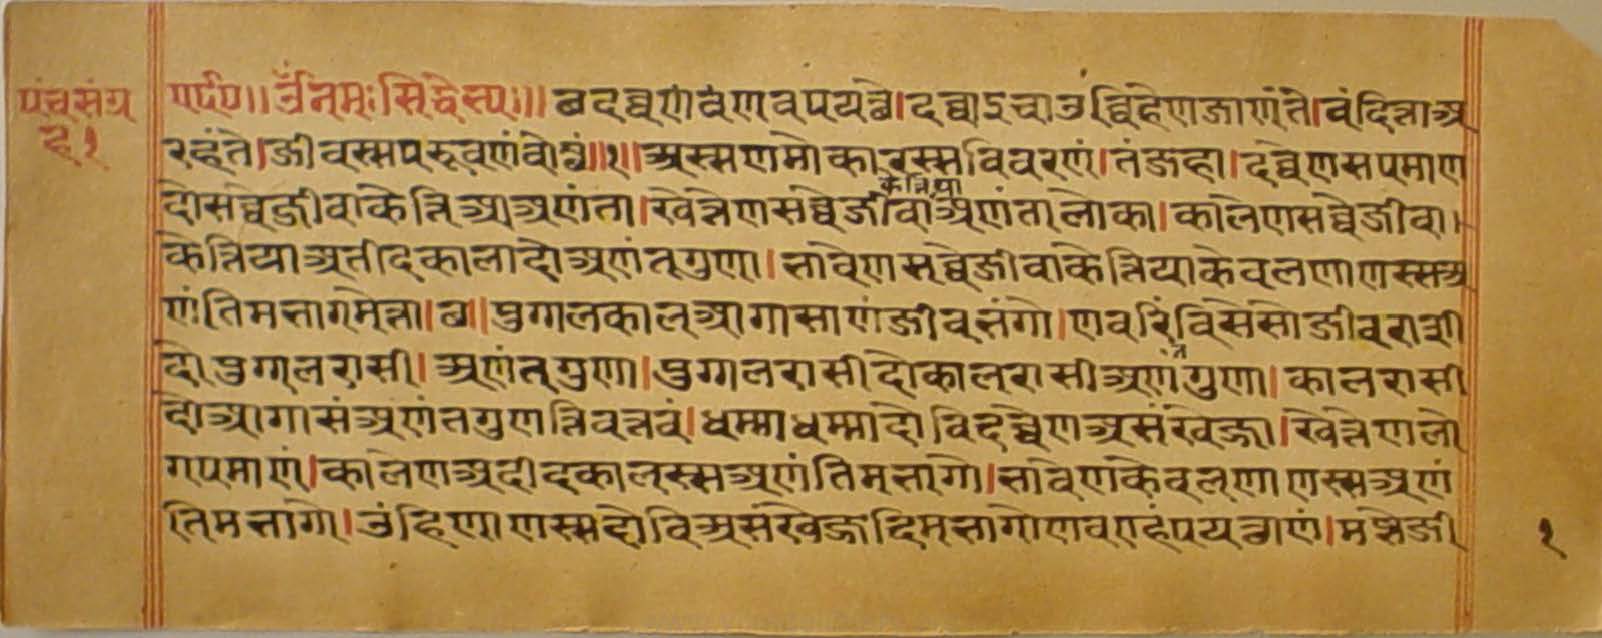 पंचसंग्र
ह १
॥ ॐ नमः सिद्धेभ्यः ॥ छदव्वणवणवपयत्थे । दव्वाइचउव्विहेण जाणंते । वंदित्ता अ
रहंते । जीवस्स परूवणं वोच्छं ॥ १ ॥ अस्स णमोकारस्स विवरणं । तं जहा । दव्वेण सपमाण
दो सव्वे जीवा केत्तिआ अणंता । खेत्तेण सव्वे जीवा केत्तिया अणंता लोका । कालेण सव्वे जीवा ।
केत्तिया अतीदकालादो अणंतगुणा । भावेण सव्वे जीवा केत्तिया केवलणाणस्स अ
णंतिमभागमेत्ता । छ ॥ पुग्गलकालआगासाणं जीवभंगो । णवरि विसेसो जीवराशी
दो पुग्गलरासी । अणंतगुणा । पुग्गलरासीदो कालरासी अणंतगुणा । कालरासी
दो आगासं अणंतगुणत्ति वत्तव्वं । धम्माधम्मादो वि दव्वेण असंखेज्जा । खेत्तेण लो
गपमाणं । कालेण अदीदकालस्स अणंतिमभागो । भावेण केवलणाणस्स अणं
तिमभागो । उंहिणाणस्स दो वि असंखेज्जदिमभागो णवण्हं पयत्थाणं । मज्झे जी
१